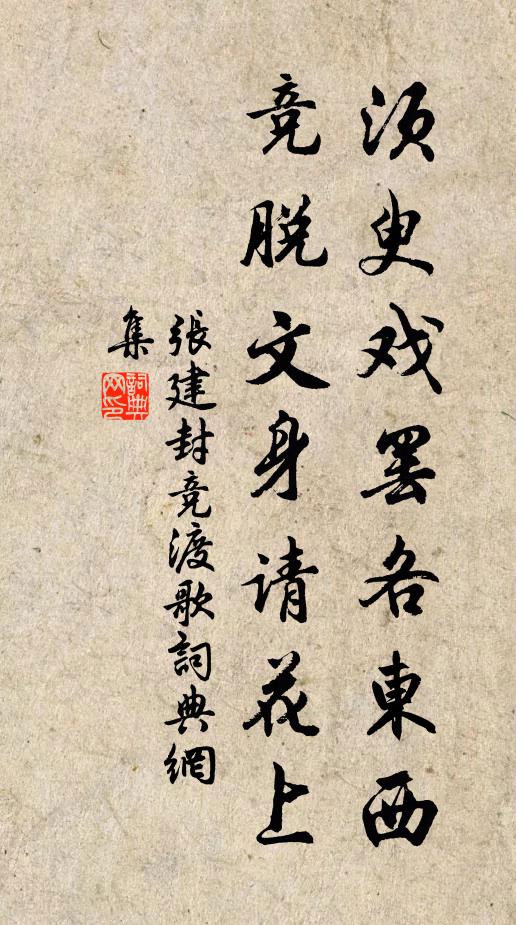 须臾戏罢各東西
竞脱文身请花上
張建封竞渡歌詞典網
集
詞典
网印